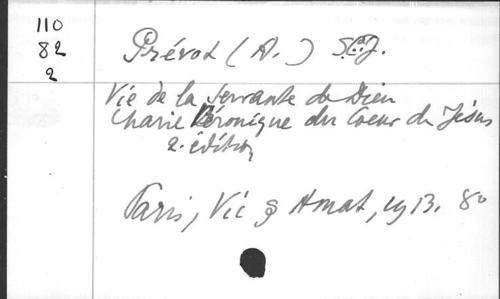 110
82
2
Prévot (A.) S.C.J.
Vie de la Servante de Dieu
Marie Véronique du Coeur de Jésus
2. édition
Paris, Vic & Amat, 1913. 8o